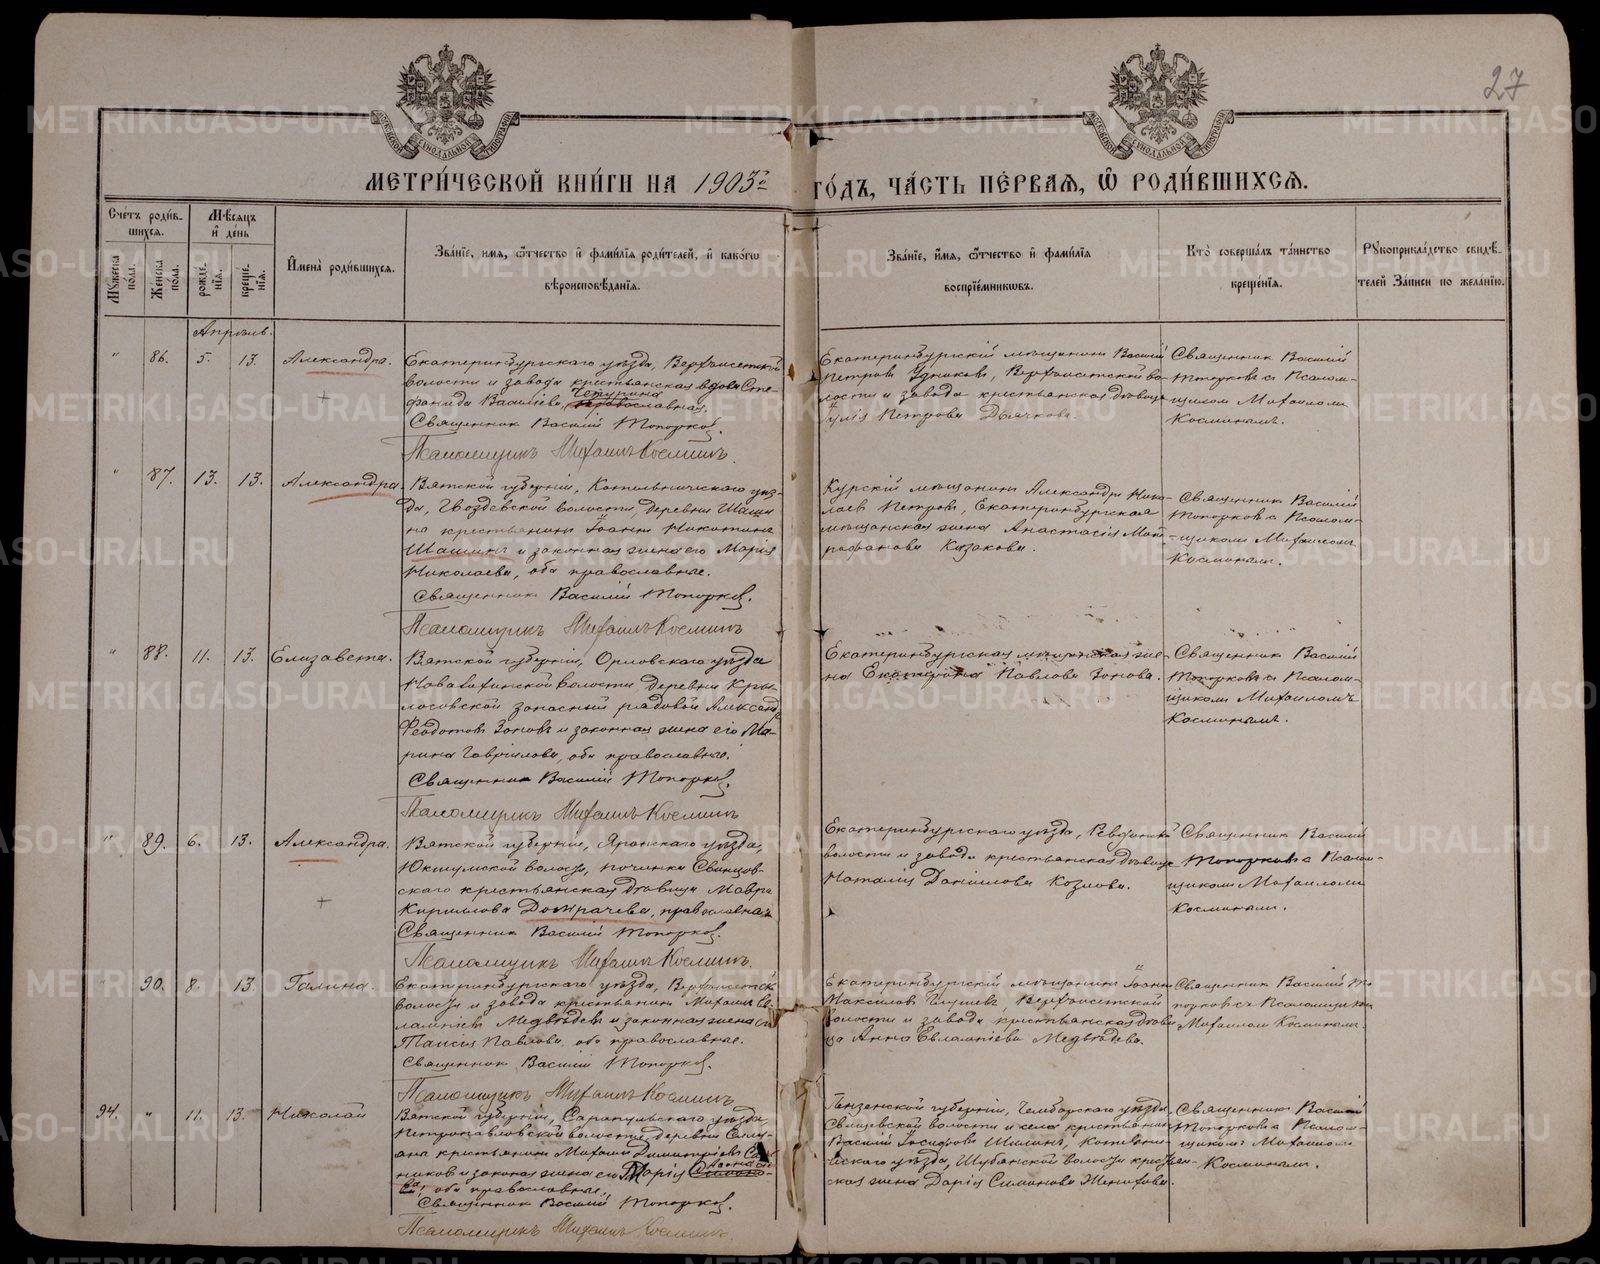 27
МЕТРИ́ЧЕСКОЙ КНИ́ГИ НА 1903й ГО́ДЪ, ЧА́СТЬ ПЕ́РВАЯ, Ѡ РОДИ́ВШИХСЯ.
Сче́тъ роди́вшихся.
Му́жеска по́ла.
Же́нска по́ла.
Мѣ́сяцъ и де́нь
рожде́нїя.
креще́нїя.
И҆мена̀ роди́вшихся.
Зва́нїе, и́мя, ѻ҆́тчество и҆ фами́лїа роди́телей, и҆ како́гѡ
вѣроисповѣ́данїя.
Зва́нїе, и́мя, ѻ҆́тчество и҆ фами́лїа
воспрїе́мниковъ.
Кто̀ соверша́лъ та́инство
креще́нїя.
Рꙋкоприкла́дство свидѣ́-
телей за́писи по жела́нїю.
Апрѣль.
" 86. 5. 13. Александра.
Екатеринбургскаго уѣзда, Верхъисетской
волости и завода крестьянская вдова Сте-
фанида Васильева Чепурина
православная.
Священник Василій Топорков.
Псаломщикъ Михаилъ Косминъ.
Екатеринбургскій мѣщанинъ Василій
Петровъ, Верхъисетской во-
лости и завода крестьянская дѣвица
Юлія Петрова Дьячкова.
Священник Василій
Топорковъ с Псалом-
щиком Михаиломъ
Косминымъ.
" 87. 13. 13. Александра.
Вятской губерніи, Котельническаго уѣз-
да, Гвоздевской волости, деревни Шаши
на крестьянинъ Іоаннъ Никитинъ
Шашинъ и законная жена его Марія
Николаева, оба православные.
Священник Василій Топорков.
Псаломщикъ Михаилъ Косминъ
Курскій мѣщанинъ Александръ Нико-
лаев Петровъ, Екатеринбургская
мѣщанская жена Анастасія Мит-
рофанова Казакова.
Священникъ Василій
Топорков с Псалом-
щиком Михаиломъ
Косминымъ.
" 88. 11. 13. Елизавета.
Вятской губерніи, Орловскаго уѣзда
волости деревни Кры-
лосовской запасный рядовой Александръ
Феодотовъ Зоновъ и законная жена его Ма-
рина Гаврилова, оба православные.
Священник Василій Топорков.
Псаломщикъ Михаилъ Косминъ
Екатеринбургская мѣщанская же-
на Екатерина Павлова Зонова.
Священник Василій
Топорковъ с Псалом-
щиком Михаиломъ
Косминымъ.
" 89. 6. 13. Александра.
Вятской губерніи, Яранскаго уѣзда,
Юкшумской волости, починка Свинцов-
скаго крестьянская дѣвица Мавра
Кириллова Домрачева, православная
Священник Василій Топорков.
Псаломщикъ Михаилъ Косминъ.
Екатеринбургскаго уѣзда, Ревдинской
волости и завода крестьянская дѣвица
Наталія Даніилова Козлова.
Священник Василій
Топорковъ с Псалом-
щиком Михаиломъ
Косминымъ.
" 90. 8. 13. Галина.
Екатеринбургскаго уѣзда, Верхъисетской
волости и завода крестьянинъ Михаилъ Ев-
лампіевъ Медвѣдевъ и законная жена его
Таисія Павлова, оба православные.
Священник Василій Топорков.
Псаломщикъ Михаилъ Косминъ
Екатеринбургскій мѣщанинъ Іоаннъ
Максимовъ Верхъисетской
волости и завода крестьянская дѣви-
ца Анна Евлампіева Медвѣдева.
Священникъ Василій То-
порковъ с Псаломщиком
Михаиломъ Косминымъ.
94. " 11. 13. Николай
Вятской губерніи, Сарапульскаго уѣзда
Петропавловской волости, деревни
крестьянинъ Михаилъ Димитріевъ
и законная жена его Марія
оба православные.
Священник Василій Топорков.
Псаломщикъ Михаилъ Косминъ.
Пензенской губерніи, Чембарскаго уѣзда
Свищевской волости и села крестьянинъ
Василій Іосифовъ Шишинъ, Котельни-
ческаго уѣзда, Шубинской волости крестьян-
ская жена Дарія Симонова
Священникъ Василій
Топорковъ с Псалом-
щикомъ Михаиломъ
Косминымъ.
METRIKI.GASO-URAL.RU